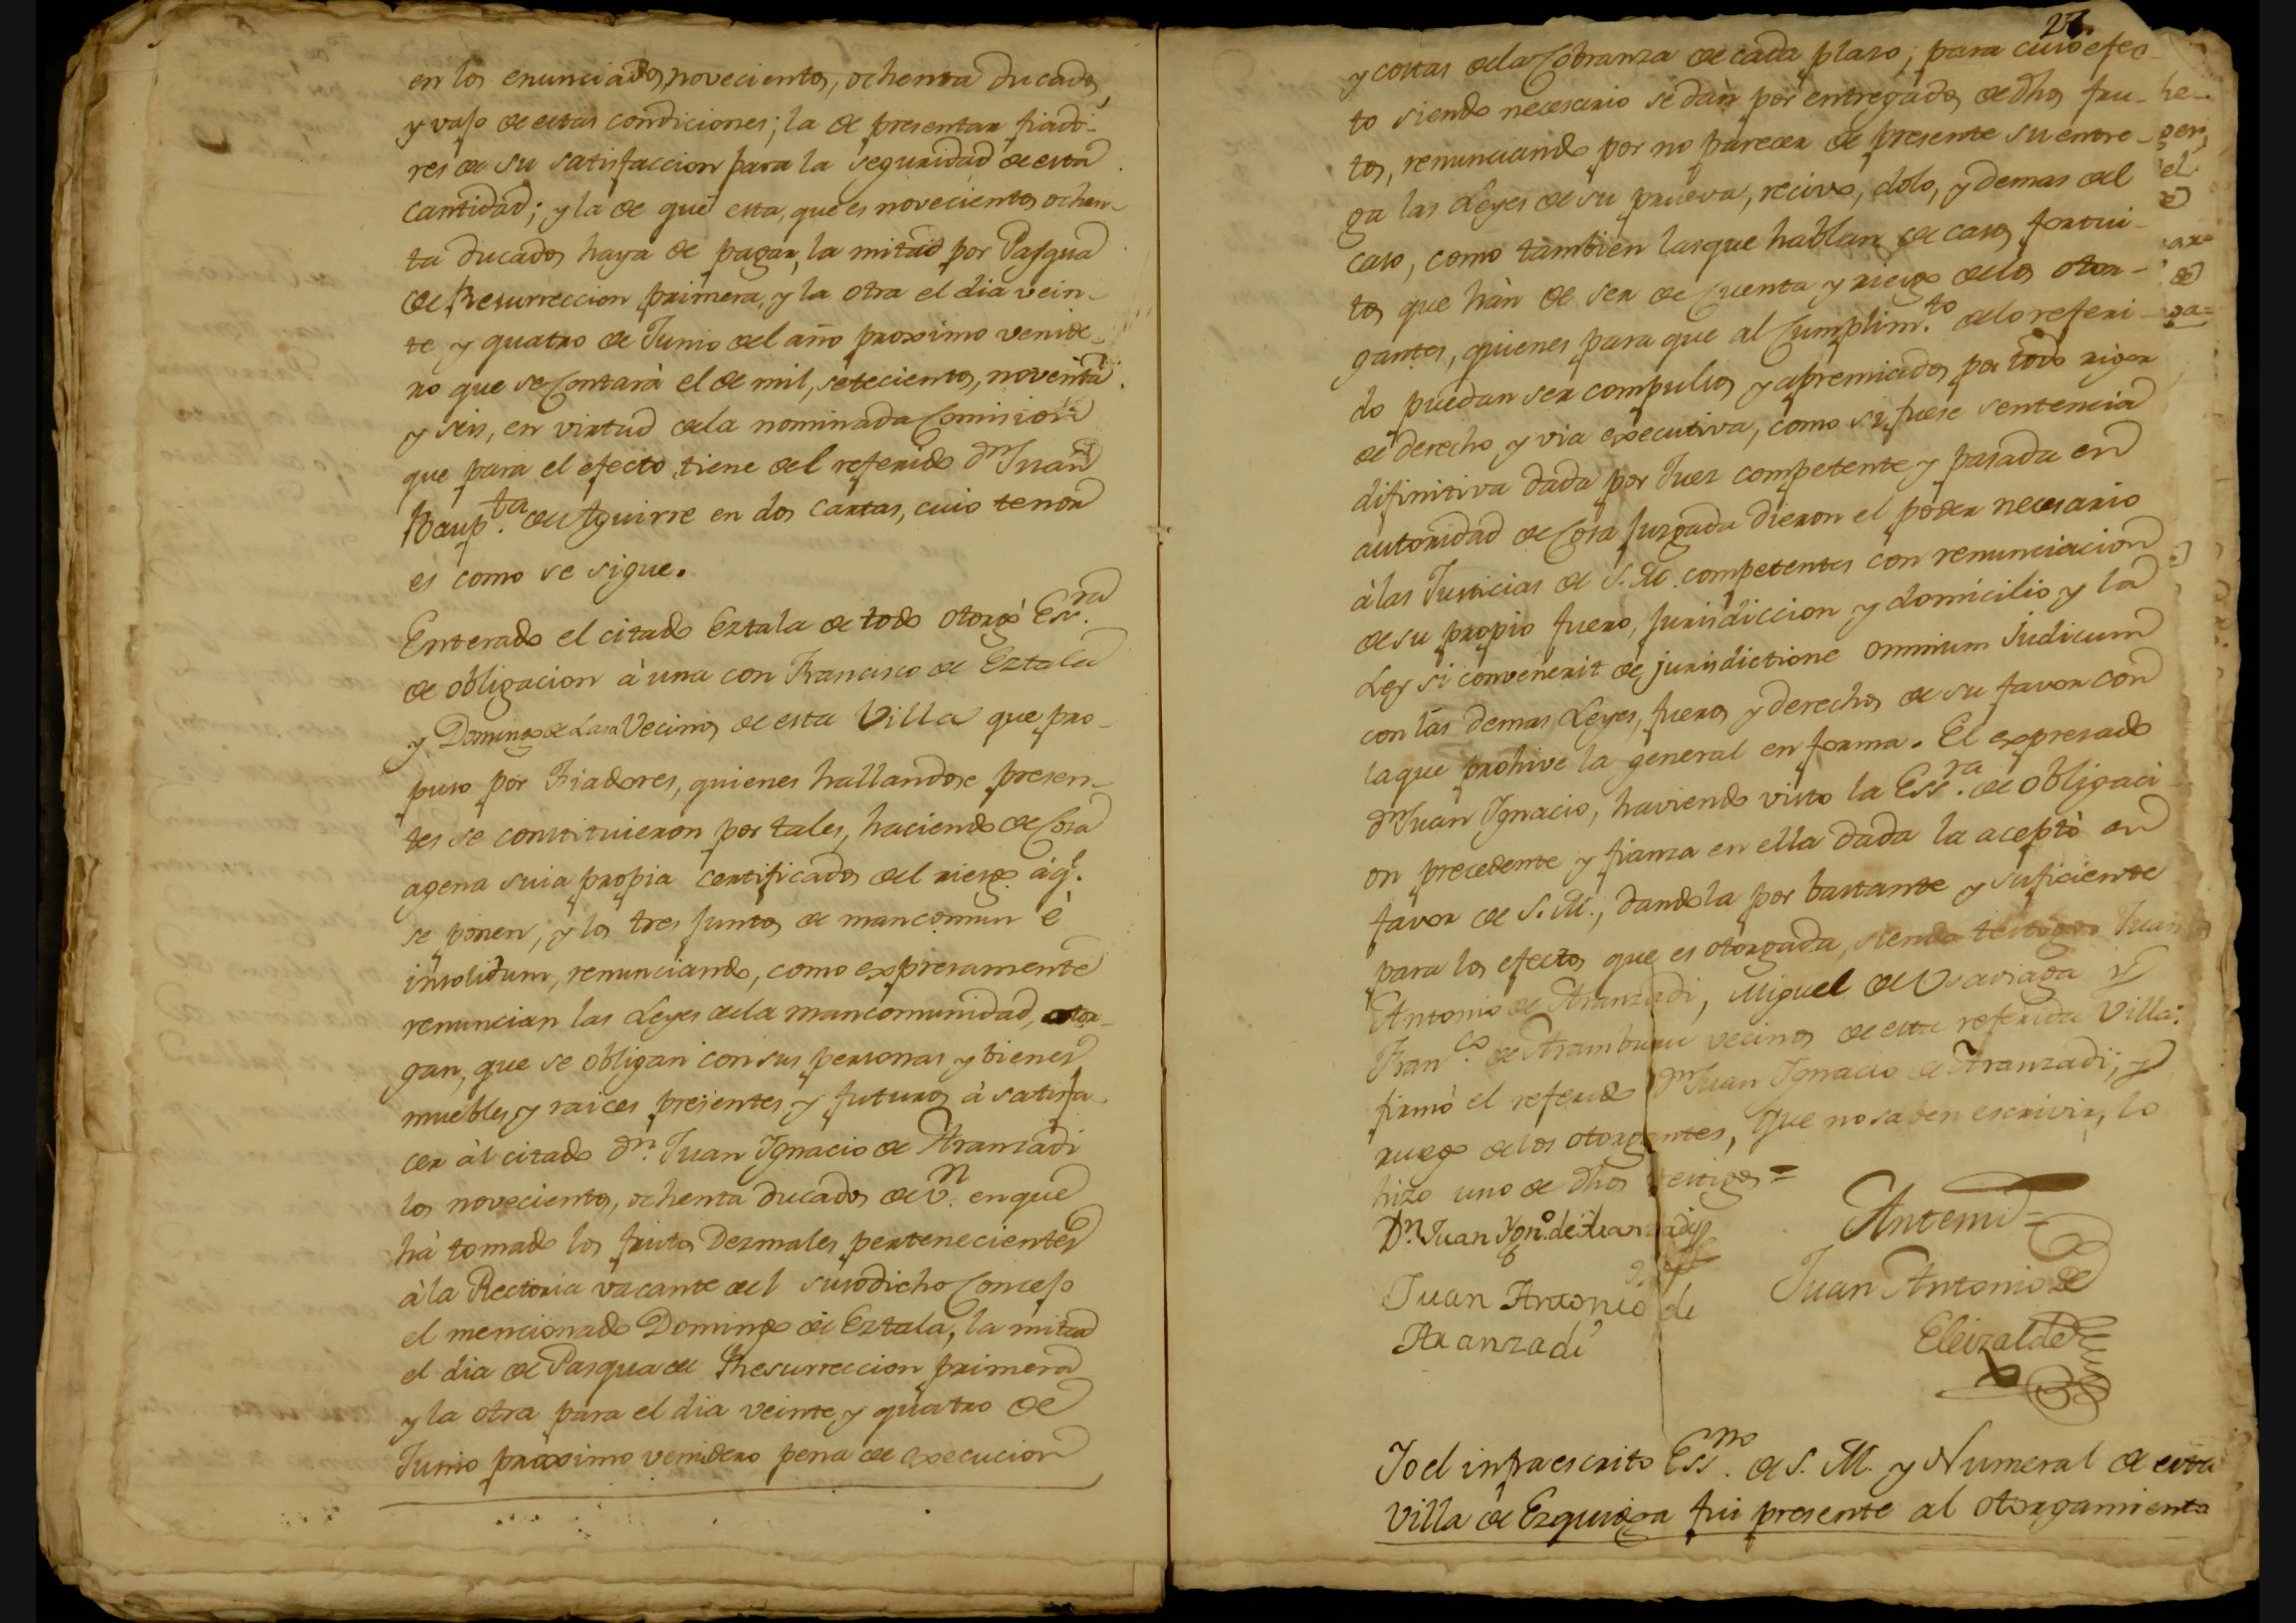 en los enunciados novecientos, ochenta ducados,
y vajo de estas condiciones; la de presentar fiado-
res de su satisfaccion para la seguridad de esta
cantidad; y la de que esta, que es novecientos ochen-
ta ducados haya de pagar, la mitad por Pasqua
de Resurreccion primera, y la otra el dia vein-
te y quatro de Junio del año proximo venide-
ro que se Contarà el de mil, setecientos, noventa
y seis, en virtud de la nominada Comision
que para el efecto tiene del referido Dn Juan
Baup.ta de Aguirre en dos cartas, cuio tenor
es como se sigue.
Enterado el citado Eztala de todo otorgò Ess.ra
de obligacion à una con Francisco de Eztala
y Domingo de Lasa Vecinos de esta Villa que pro-
puso por Fiadores, quienes hallandose presen-
tes se constituieron por tales, haciendo de Cosa
agena suia propia certificados del riesgo à q.e
se ponen, y los tres juntos de mancomun è
insolidum, renunciando, como expresamente
renuncian las Leyes de la mancomunidad, otor-
gan, que se obligan con sus personas y bienes
muebles y raices presentes y futuros à satisfa-
cer àl citado Dn. Juan Ignacio de Aranzadi
los novecientos, ochenta ducados de v.n en que
hà tomado los frutos Dezmales pertenecientes
à la Rectoria vacante del susodicho Concejo
el mencionado Domingo de Eztala, la mitad
el dia de Pasqua de Resurreccion primera
y la otra para el dia veinte y quatro de
Junio proximo venidero pena de execucion
27.
y costas de la Cobranza de cada plazo; para cuio efec-
to siendo necesario se dàn por entregados de dhos fru-
tos, renunciando por no parecer de presente su entre-
ga las Leyes de su prueva, recivo, dolo, y demas del
caso, como tambien las que hablan de casos fortui-
tos que hàn de ser de Cuenta y riesgo de los otor-
gantes, quienes para que al Cumplim.to de lo referi-
do puedan ser compulsos y apremiados por todo rigor
de derecho y via executiva, como si fuese sentencia
difinitiva dada por Juez competente y pasada en
autoridad de Cosa juzgada dieron el poder necesario
à las Justicias de S. M. competentes con renunciacion
de su propio fuero, jurisdiccion y domicilio y la
Ley si convenerit de jurisdictione omnium judicum
con las demas Leyes, fueros y derechos de su favor con
la que prohive la general en forma. El expresado
Dn Juan Ignacio, haviendo visto la Ess.ra de obligaci
on precedente y fianza en ella dada la aceptò en
favor de S. M., dandola por bastante y suficiente
para los efectos que es otorgada, siendo testigos Juan
Antonio de Aranzadi, Miguel de Usaviaga y
Fran.co de Aramburu vecinos de esta referida Villa:
firmò el referido Dn Juan Ignacio de Aranzadi; y
ruego de los otorgantes, que no saben escrivir, lo
hizo uno de dhos testigos=
Dn. Juan Ygn.o de Aranzadi
Antemi=
Juan Antonio de
Aranzadi
Juan Antonio de
Eleizalde
Yo el infraescrito Ess.no de S. M. y Numeral de esta
Villa de Ezquioga fui presente al otorgamiento